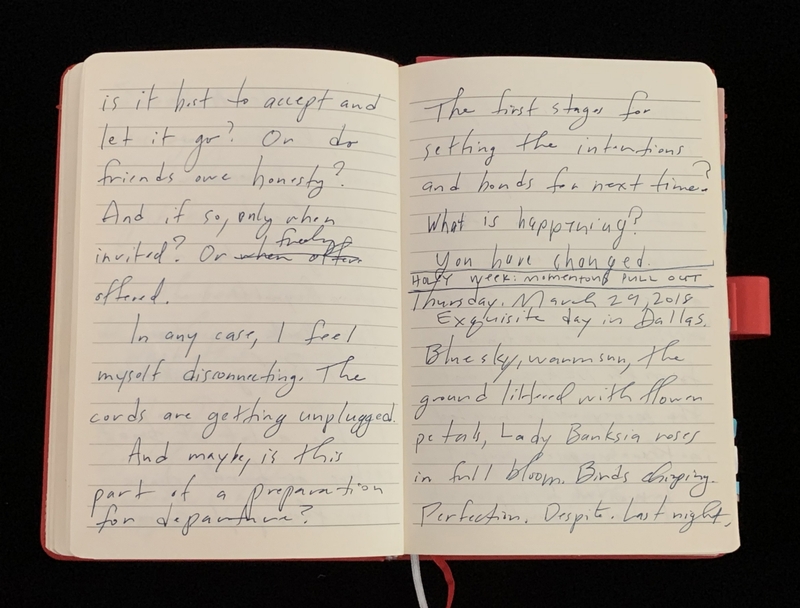 is it best to accept and
let it go? Or do
friends owe honesty?
And if so, only when
invited? Or when offer freely
offered.
In any case, I feel
myself disconnecting. The
cords are getting unplugged.
And maybe, is this
part of a preparation
for departure?
The first stages for
setting the intentions
and bonds for next time?
What is happening?
You have changed.
HOLY WEEK: MOMENTOUS PULL OUT
Thursday, March 29, 2018
Exquisite day in Dallas.
Blue sky, warm sun, the
ground littered with flower
petals, Lady Banksia roses
in full bloom. Birds chirping.
Perfection. Despite. Last night,